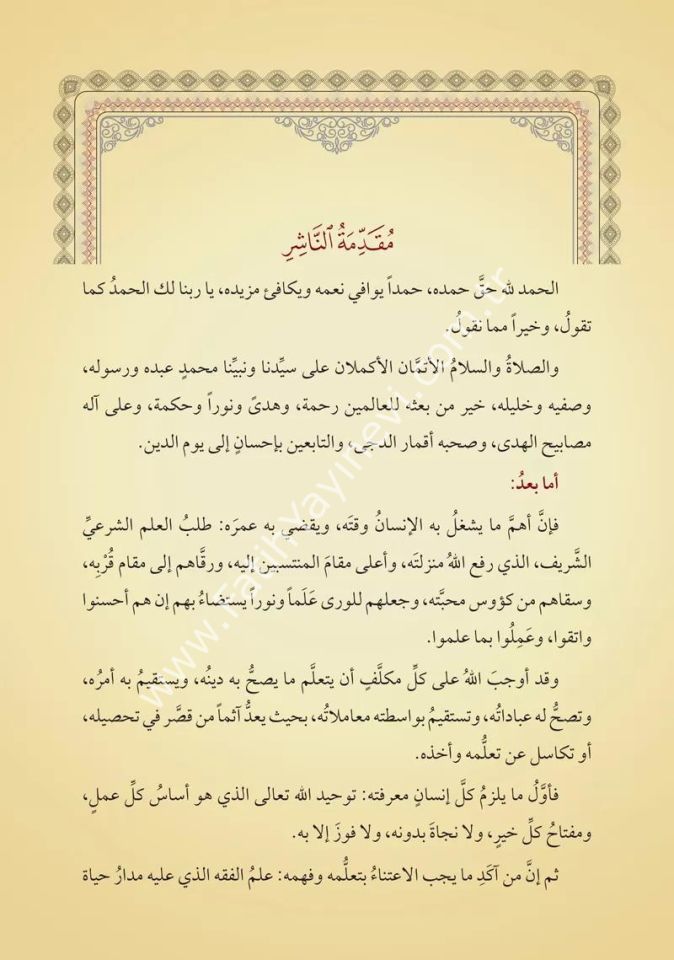 مُقَدِّمَةُ ٱلنَّاشِرِ
الحمد لله حقَّ حمده، حمداً يوافي نعمه ويكافئ مزيده، يا ربنا لك الحمدُ كما
تقولُ، وخيراً مما نقولُ.
والصلاةُ والسلامُ الأتمَّان الأكملان على سيِّدنا ونبيِّنا محمدٍ عبده ورسوله،
وصفيه وخليله، خير من بعثه للعالمين رحمة، وهدىً ونوراً وحكمة، وعلى آله
مصابيح الهدى، وصحبه أقمار الدجى، والتابعين بإحسانٍ إلى يوم الدين.
أما بعدُ:
فإنَّ أهمَّ ما يشغلُ به الإنسانُ وقتَه، ويقضي به عمرَه: طلبُ العلم الشرعيِّ
الشَّريف، الذي رفع اللهُ منزلتَه، وأعلى مقامَ المنتسبين إليه، ورقَّاهم إلى مقام قُرْبِه،
وسقاهم من كؤوس محبَّته، وجعلهم للورى عَلَماً ونوراً يستضاءُ بهم إن هم أحسنوا
واتقوا، وعَمِلُوا بما علموا.
وقد أوجبَ اللهُ على كلِّ مكلَّفٍ أن يتعلَّم ما يصحُّ به دينُه، ويستقيمُ به أمرُه،
وتصحُّ له عباداتُه، وتستقيمُ بواسطته معاملاتُه، بحيث يعدُّ آثماً من قصَّر في تحصيله،
أو تكاسل عن تعلُّمه وأخذه.
فأوَّلُ ما يلزمُ كلَّ إنسانٍ معرفته: توحيد الله تعالى الذي هو أساسُ كلِّ عملٍ،
ومفتاحُ كلِّ خيرٍ، ولا نجاةَ بدونه، ولا فوزَ إلا به.
ثم إنَّ من آكَدِ ما يجب الاعتناءُ بتعلُّمه وفهمه: علمُ الفقه الذي عليه مدارُ حياة
www.FatihYayinevi.com.tr